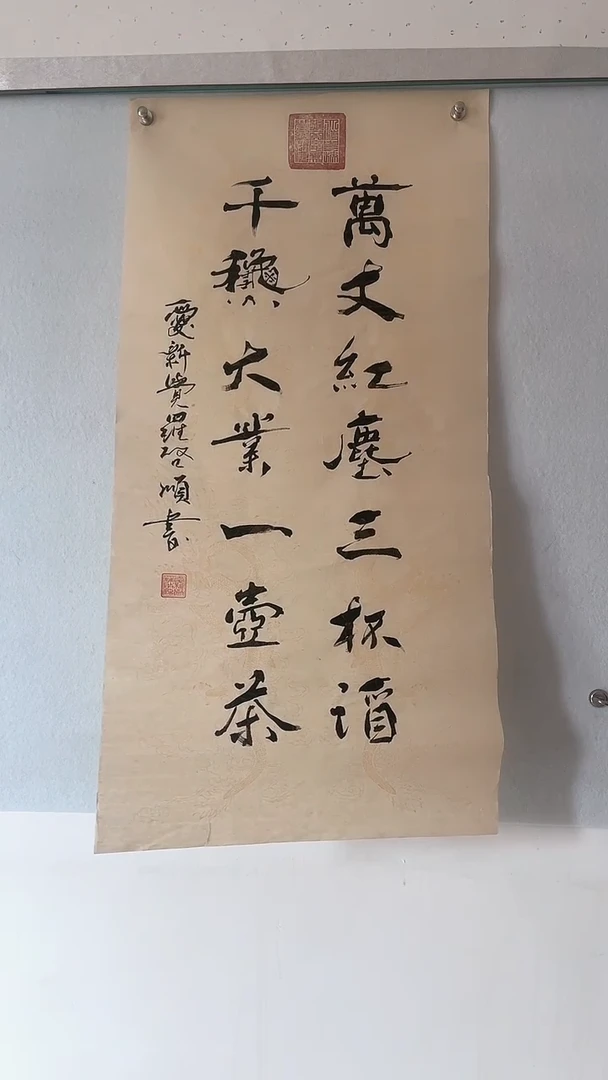 萬丈紅塵三杯酒
千龝大業一壺茶
愛新覺羅啓順書